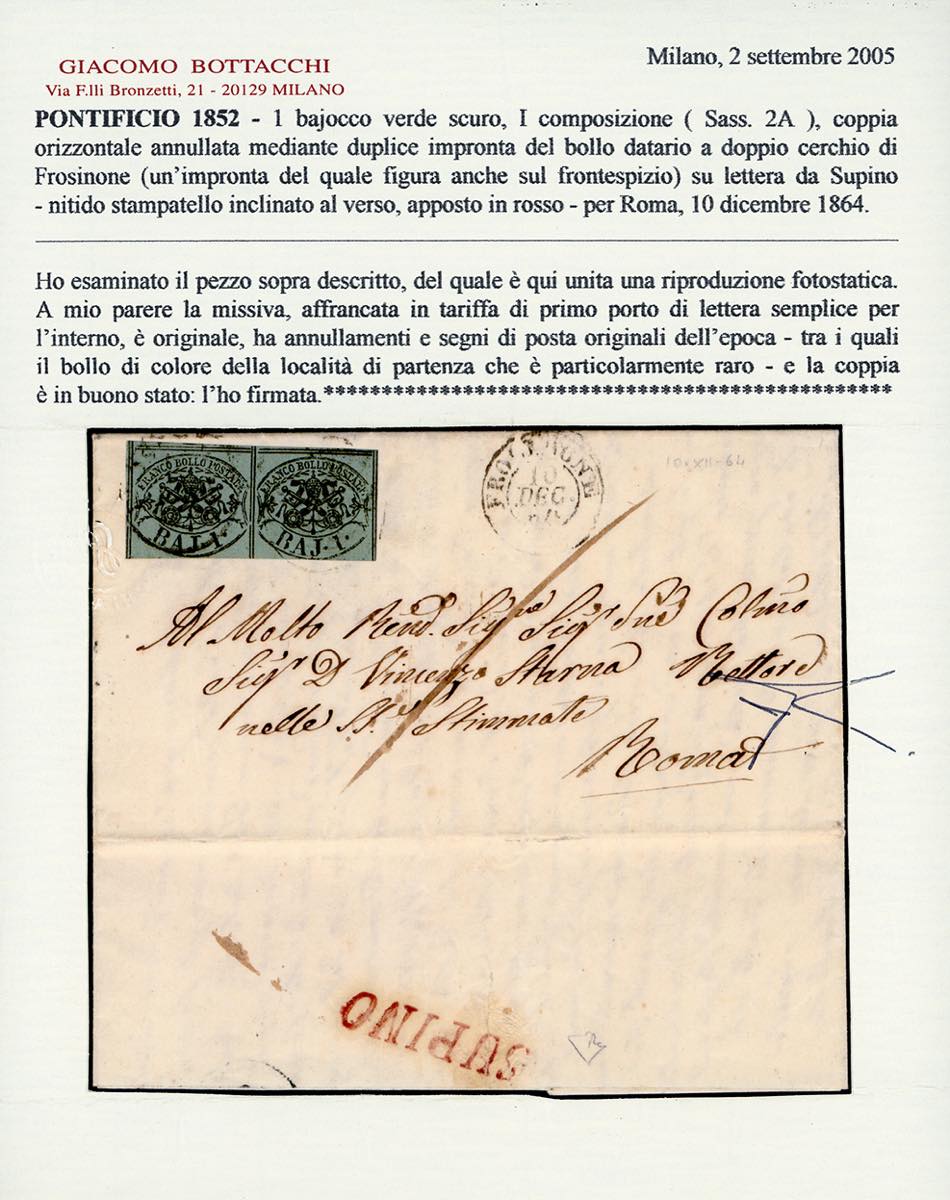 GIACOMO BOTTACCHI
Via F.lli Bronzetti, 21 - 20129 MILANO
Milano, 2 settembre 2005
PONTIFICIO 1852 - 1 bajocco verde scuro, I composizione ( Sass. 2A ), coppia
orizzontale annullata mediante duplice impronta del bollo datario a doppio cerchio di
Frosinone (un'impronta del quale figura anche sul frontespizio) su lettera da Supino
- nitido stampatello inclinato al verso, apposto in rosso - per Roma, 10 dicembre 1864.
Ho esaminato il pezzo sopra descritto, del quale è qui unita una riproduzione fotostatica.
A mio parere la missiva, affrancata in tariffa di primo porto di lettera semplice per
l'interno, è originale, ha annullamenti e segni di posta originali dell'epoca - tra i quali
il bollo di colore della località di partenza che è particolarmente raro - e la coppia
è in buono stato: l'ho firmata.************************************************
FRANCO BOLLO POSTALE
BAJ.1.
FRANCO BOLLO POSTALE
BAJ.1.
FROSINONE
10
DEC.
64
10-XII-64
Al Molto Rend. Sigre Sigr
Sigr D Vincenzo Sterna Rettore
nelle SS. Stimmate
Roma
SUPINO